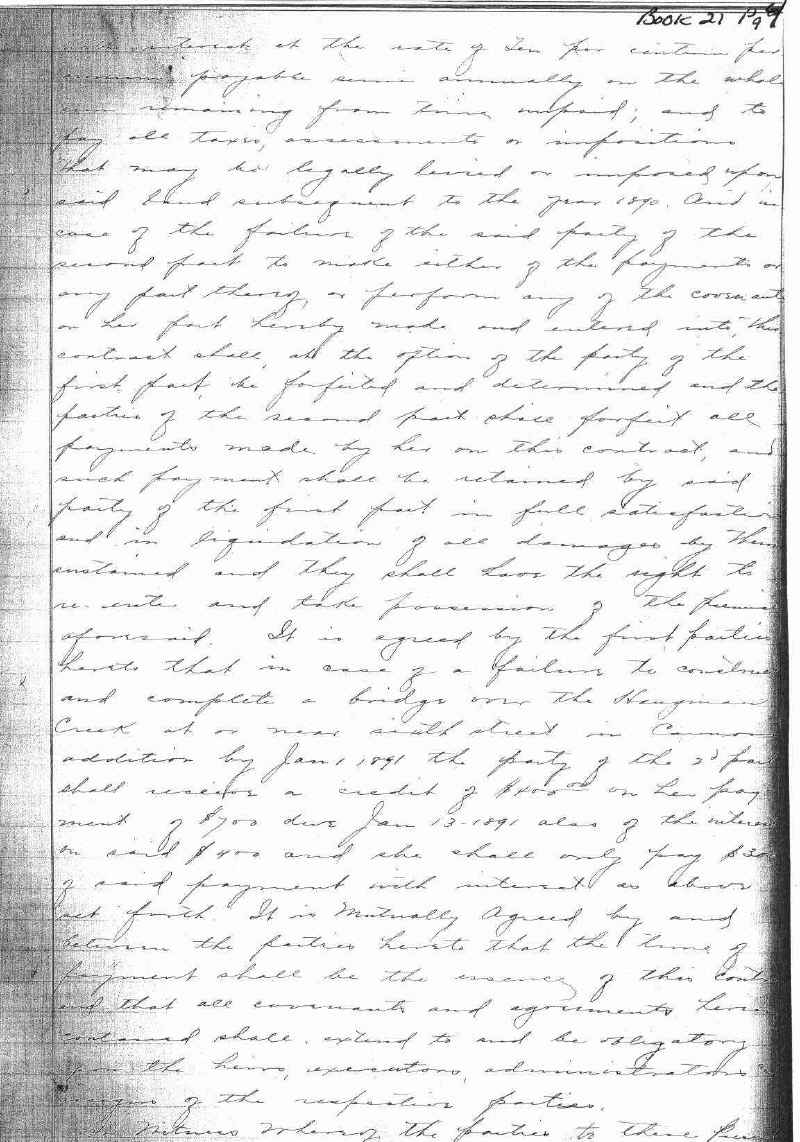 Book 21 Pg
interest at the rate of Ten per centum per
annum payable semi annually on the whole
sum remaining from time unpaid; and to
pay all taxes, assessments or impositions
that may be legally levied or imposed upon
said land subsequent to the year 1890. And in
case of the failure of the said party of the
second part to make either of the payments or
any part thereof, or perform any of the covenants
on her part hereby made and entered into, this
contract shall, at the option of the party of the
first part, be forfeited and determined and the
parties of the second part shall forfeit all
payments made by her on this contract, and
such payment shall be retained by said
party of the first part in full satisfaction
and in liquidation of all damages by them
sustained and they shall have the right to
re-enter and take possession of the premises
aforesaid. It is agreed by the first parties
hereto that in case of a failure to construct
and complete a bridge over the Hangman
Creek at or near sixth street in Cannon
addition by Jan 1, 1891 the party of the 2d part
shall receive a credit of $400 00 on her pay-
ment of $700 due Jan 13-1891 also of the interest
on said $400 and she shall only pay $300
of said payment with interest as above
set forth. It is Mutually Agreed by and
between the parties hereto that the time of
payment shall be the essence of this cont
and that all covenants and agreements herein
contained shall extend to and be obligatory
upon the heirs, executors, administrators
assigns of the respective parties.
Witness Whereof the parties to these